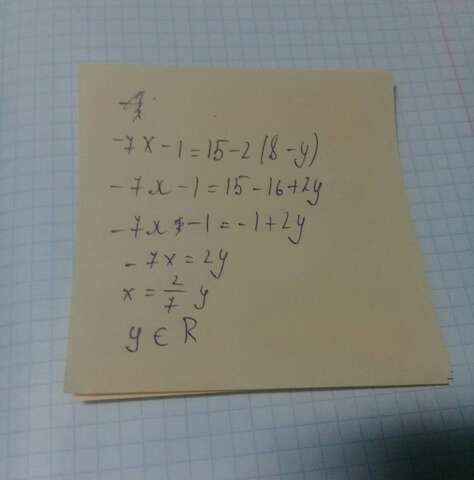 -7x-1=15-2(8-y)
-7x-1=15-16+2y
-7x-1=-1+2y
-7x=2y
x=2/7 y
y∈R